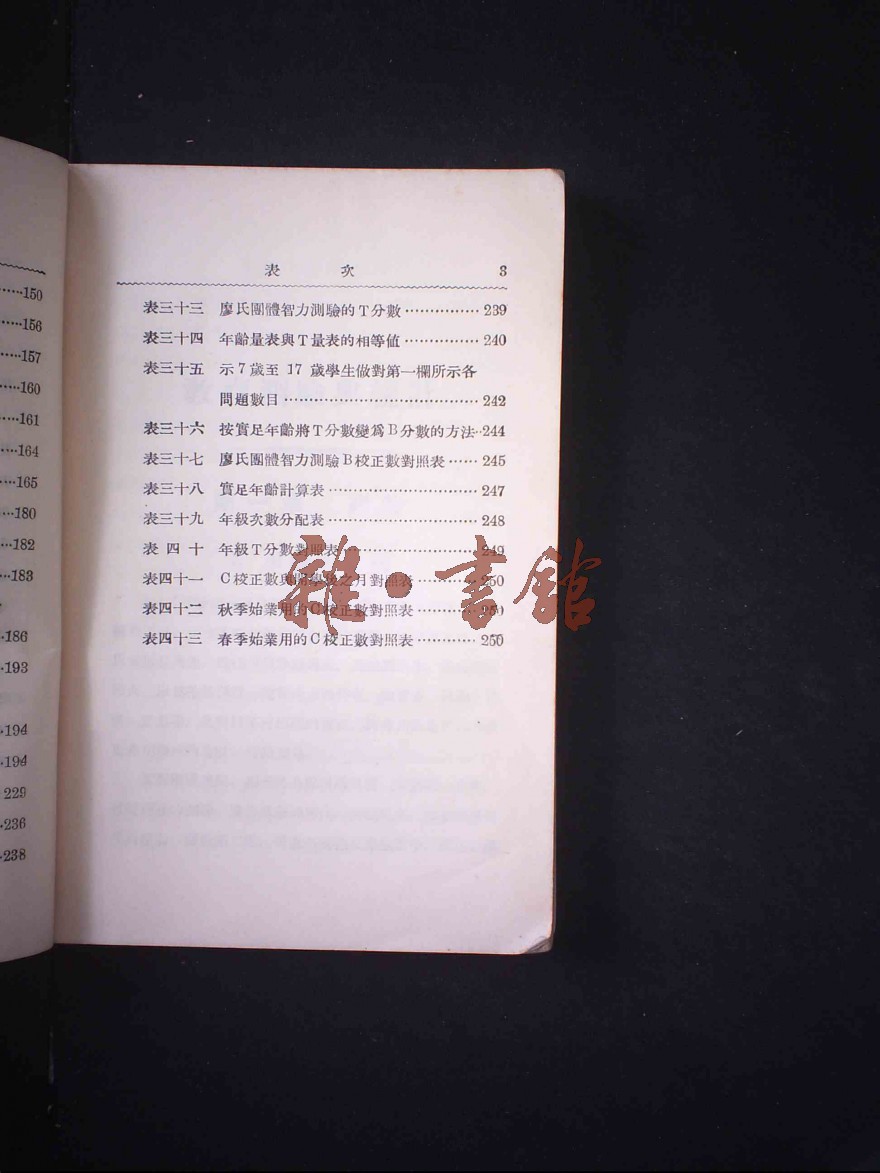 150
156
157
160
161
164
165
180
182
183
186
193
194
194
229
236
238
表次 3
表三十三 廖氏團體智力測驗的T分數……………239
表三十四 年齡量表與T量表的相等値……………240
表三十五 示7歲至17歲學生做對第一欄所示各
問題數目……………242
表三十六 按實足年齡將T分數變爲B分數的方法…244
表三十七 廖氏團體智力測驗B校正數對照表……245
表三十八 實足年齡計算表……………247
表三十九 年級次數分配表……………248
表四十 年級T分數對照表……………249
表四十一 C校正數與開學後之月對照表…………250
表四十二 秋季始業用的C校正數對照表…………250
表四十三 春季始業用的C校正數對照表…………250
雜·書館